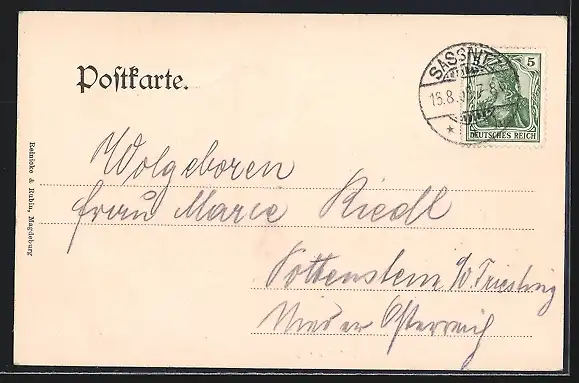 Postkarte.
SASSNITZ
5
DEUTSCHES REICH
Wolgeboren
frau Marie Riedl
Pottenstein a/d Triesting
Nieder Österreich
Reinicke & Rubin, Magdeburg